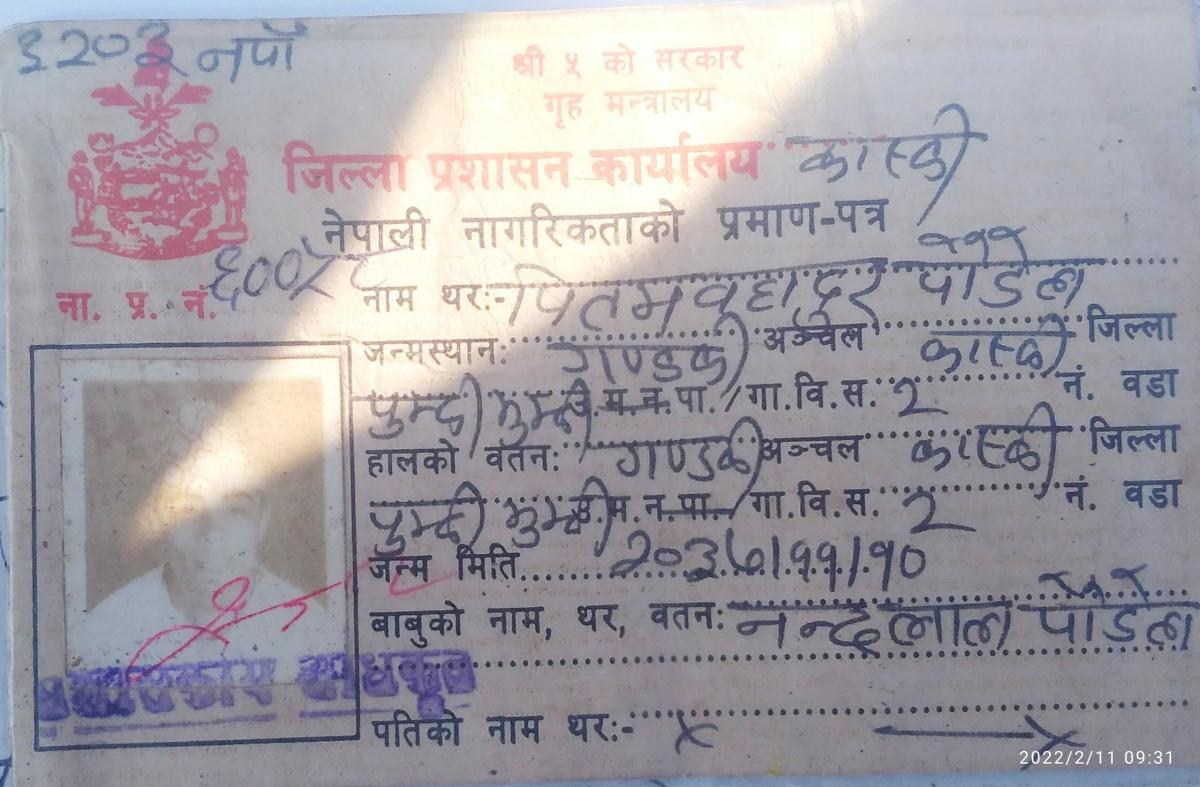 ६२०३ नपाँ
श्री ५ को सरकार
गृह मन्त्रालय
जिल्ला प्रशासन कार्यालय कास्की
नेपाली नागरिकताको प्रमाण-पत्र
ना. प्र. नं.
नाम थर:- पितमवहादुर पौडेल
जन्मस्थान: गण्डकी अञ्चल कास्की जिल्ला
पुम्दी भुम्दी उ.म.न.पा./गा.वि.स. २ नं. वडा
हालको वतन: गण्डकी अञ्चल कास्की जिल्ला
पुम्दी भुम्दी उ.म.न.पा./गा.वि.स. २ नं. वडा
जन्म मिति २०३७।११।१०
बाबुको नाम, थर, वतन: नन्दलाल पौडेल
पतिको नाम थर:- x x
2022/2/11 09:31